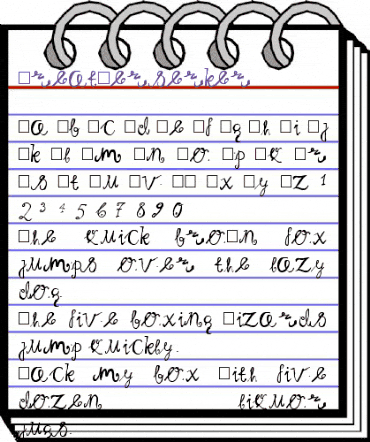 □reat□erserker
□a □b □c □d □e □f □g □h □i □j
□k □l □m □n □o □p □q □r
□s □t □u □v □□ □x □y □z 1
2 3 4 5 6 7 8 9 0
□he quick bro□n fox
jumps over the lazy
dog
□he five boxing □izards
jump quickly.
□ack my box □ith five
dozen liquor
jugs.